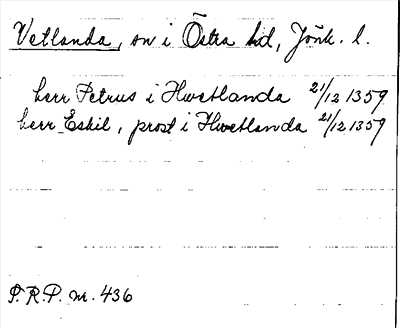 Vetlanda, sn i Östra hd, Jönk. l.
herr Petrus i Hwetlanda 21/12 1359
herr Eskil, prost i Hwetlanda 21/12 1359
P.R.P. nr. 436